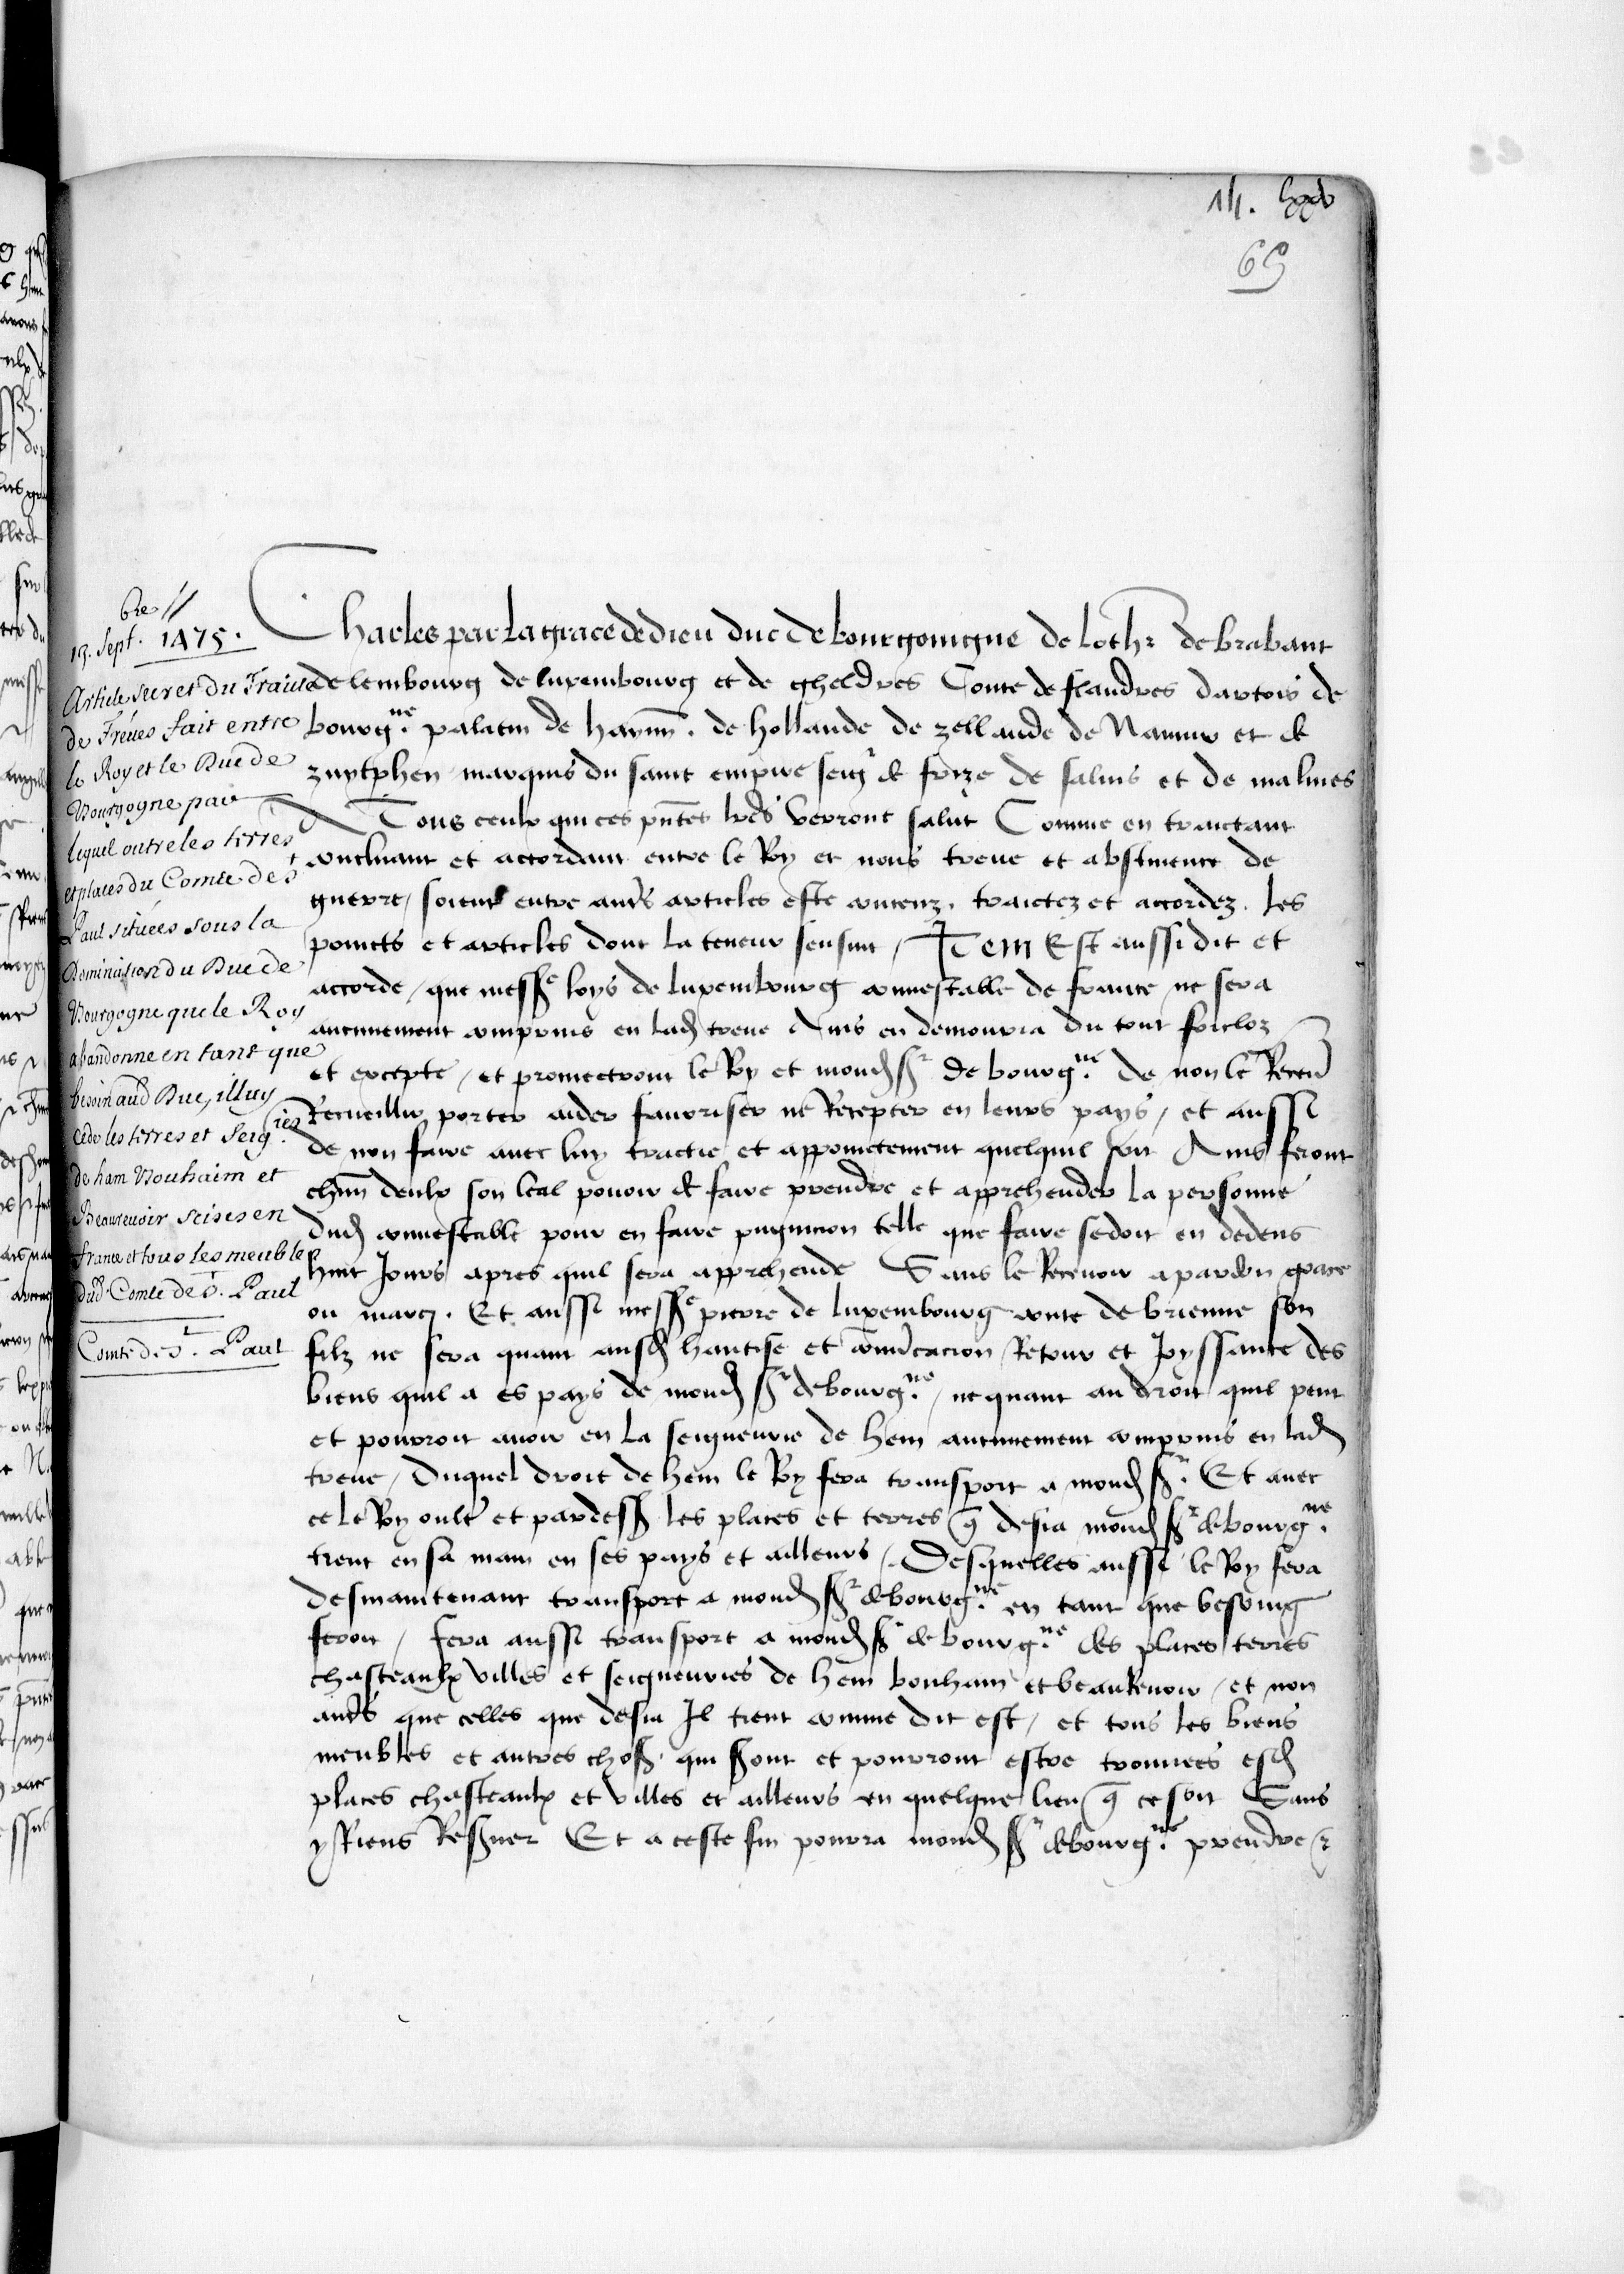 lxxv
69
bre
13. Sept. 1475.
Article secret du Traitté
de Tréues fait entre
le Roy et le Duc de
Bourgogne par
lequel outre les terres
et places du Comte de St
Paul situées sous la
Domination du Duc de
Bourgogne que le Roy
abandonne en tant que
besoin aud Duc, il luy
cede les terres et Seigries
de ham Bouhaim et
Beaureuoir scises en
france et tous les meuble
dud. Comte de St. Paul
Comte de St. Paul
Charles par la grace de dieu duc de bourgoingne de Lothr de brabant
de lembourg de luxembourg et de gheldres Conte de flandres dartois de
bourgne. palatin de haynn. de hollande de zellande de Namur et de
zuytphen marquis du saint empire seigr de frize de salins et de malines
A Tous ceulx qui ces pntes lres verront salut Comme en traictant
concluant et accordant entre le Roy et nous treue et abstinence de
guerre / soient entre autrs articles este conceuz. traictez et accordez. les
poincts et articles dont la teneur sensuit / Item Est aussi dit et
accorde / que messre loys de luxembourg connestable de france ne sera
aucunement comprins en lad treue Ains en demourra du tout forcloz
et excepte / et promectront le Roy et mond sr de bourgne. de non le Receu
Recueillir porter aider fauoriser ne Recepter en leurs pays / et aussi
de non faire auec luy traictie et appoinctement quelquil soit Ains feront
chun deulx son leal pouoir de faire prendre et apprehender la personne
dud connestable pour en faire pugnicion telle que faire se doit en dedens
huit Jours apres quil sera apprehende Sans le Receuoir a pardon grace
ou mercy. Et aussi messre pierre de luxembourg conte de brienne son
filz ne sera quant ausd hantise et comunicacion Retour et Joyssance des
biens quil a es pays de mond sr de bourgne. / ne quant au droit quil peut
et pourroit auoir en la seigneurie de hem aucunement comprins en lad
treue / Duquel droit de hem le Roy fera transport a mond sr. Et auec
ce le Roy oultr et pardess les places et terres q desia mond sr de bourgne.
tient en sa main en ses pays et ailleurs / Desquelles aussi le Roy fera
desmaintenant transport a mond sr de bourgne. en tant que besoing
seroit / fera aussi transport a mond sr de bourgne. des places terres
chasteaulx villes et seigneuries de hem bouhain et beaureuoir / et non
autrs que celles que desia Il tient comme dit est / et tous les biens
meubles et autres chos. qui sont et pourront estre trouuees esd
places chasteaulx et villes et ailleurs en quelque lieu q ce soit Sans
y Riens Resuer Et a ceste fin pourra mond sr de bourgne. prendre et